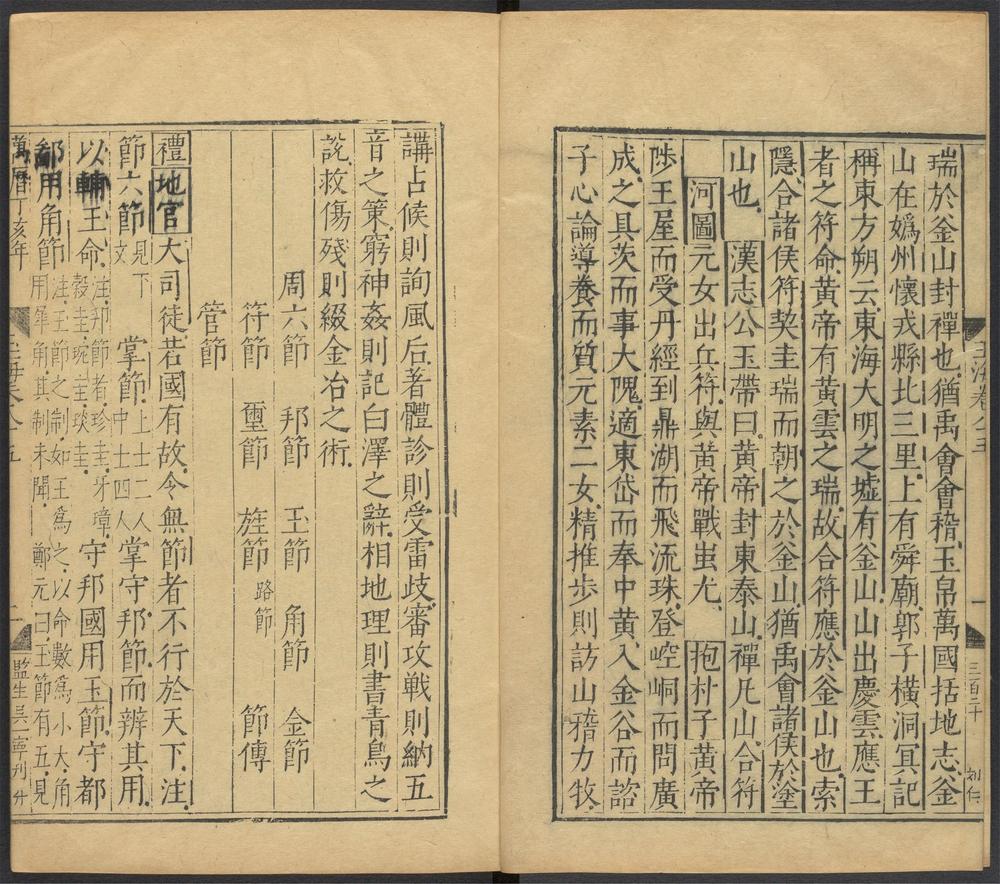 玉海卷八十五
一
三百二十
刘仁
瑞於釜山封禪也猶禹會會稽玉帛萬國括地志釜
山在嬀州懷戎縣北三里上有舜廟郭子橫洞冥記
稱東方朔云東海大明之墟有釜山山出慶雲應王
者之符命黃帝有黃雲之瑞故合符應於釜山也索
隱合諸侯符契圭瑞而朝之於釜山猶禹會諸侯於塗
山也 漢志公玉帶曰黃帝封東泰山禪凡山合符
河圖元女出兵符與黃帝戰蚩尤 抱朴子黃帝
陟王屋而受丹經到鼎湖而飛流珠登崆峒而問廣
成之具茨而事大隗適東岱而奉中黃入金谷而諮
子心論導養而質元素二女精推步則訪山稽力牧
講占候則詢風后著體診則受雷歧審攻戰則納五
音之策窮神姦則記白澤之辭相地理則書青烏之
說救傷殘則綴金冶之術
周六節 邦節 玉節 角節 金節
符節 璽節 旌節路節 節傳
管節
禮地官大司徒若國有故令無節者不行於天下注
節六節見下文 掌節上士二人中士四人掌守邦節而辨其用
以輔王命注邦節者珍圭牙璋穀圭琬圭琰圭守邦國用玉節守都
鄙用角節注王節之制如王爲之以命數爲小大角用犀角其制未聞 鄭元曰玉節有五見
萬曆丁亥年
二
監生吳一寧刊